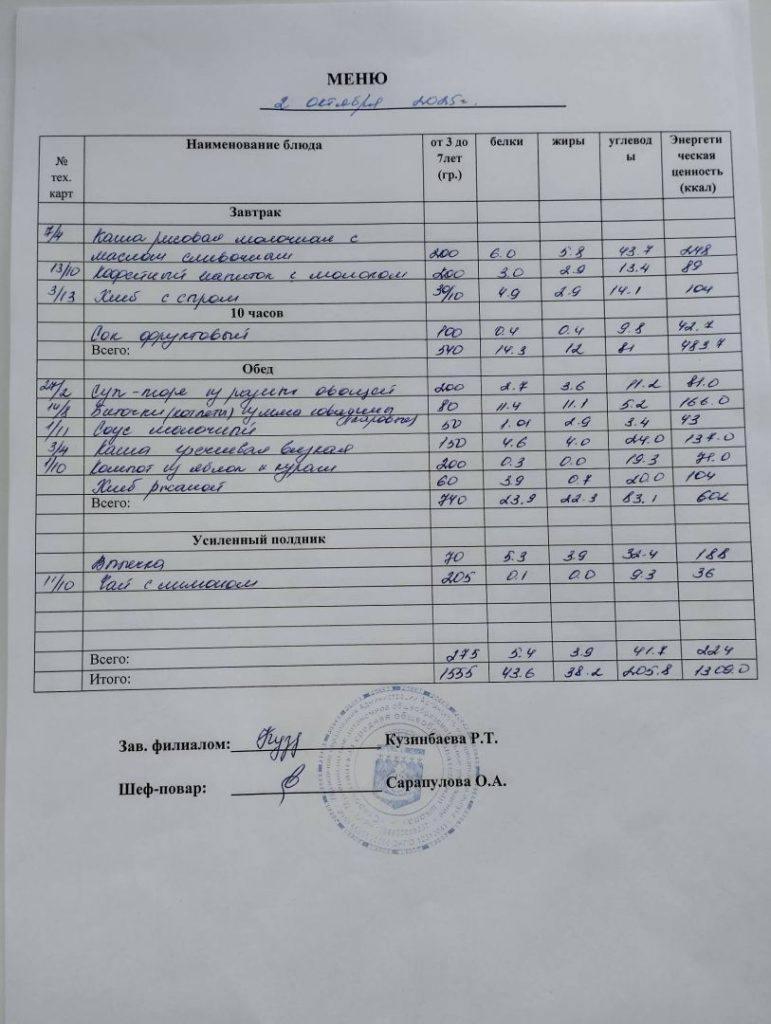 МЕНЮ
2 октября 2025г.
№ тех. карт Наименование блюда от 3 до 7лет (гр.) белки жиры углевод ы Энергети ческая ценность (ккал)
Завтрак
7/4 Каша рисовая молочная с
маслом сливочным 200 6.0 5.8 43.7 248
13/10 Кофейный напиток с молоком 200 3.0 2.9 13.4 89
3/13 Хлеб с сыром 30/10 4.9 2.9 14.1 104
10 часов
Сок фруктовый 100 0.4 0.4 9.8 42.7
Всего: 540 14.3 12 81 483.7
Обед
27/2 Суп-пюре из разных овощей 200 2.7 3.6 11.2 81.0
14/8 Биточки (котлеты) из мяса говядины (паровые) 80 11.4 11.1 5.2 166.0
1/11 Соус молочный 50 1.01 2.9 3.4 43
3/4 Каша гречневая вязкая 150 4.6 4.0 24.0 137.0
1/10 Компот из яблок и кураги 200 0.3 0.0 19.3 71.0
Хлеб ржаной 60 3.9 0.7 20.0 104
Всего: 740 23.9 22.3 83.1 602
Усиленный полдник
Выпечка 70 5.3 3.9 32.4 188
11/10 Чай с лимоном 205 0.1 0.0 9.3 36
Всего: 275 5.4 3.9 41.7 224
Итого: 1555 43.6 38.2 205.8 1309.0
Зав. филиалом: Куз Кузинбаева Р.Т.
Шеф-повар: Сарапулова О.А.